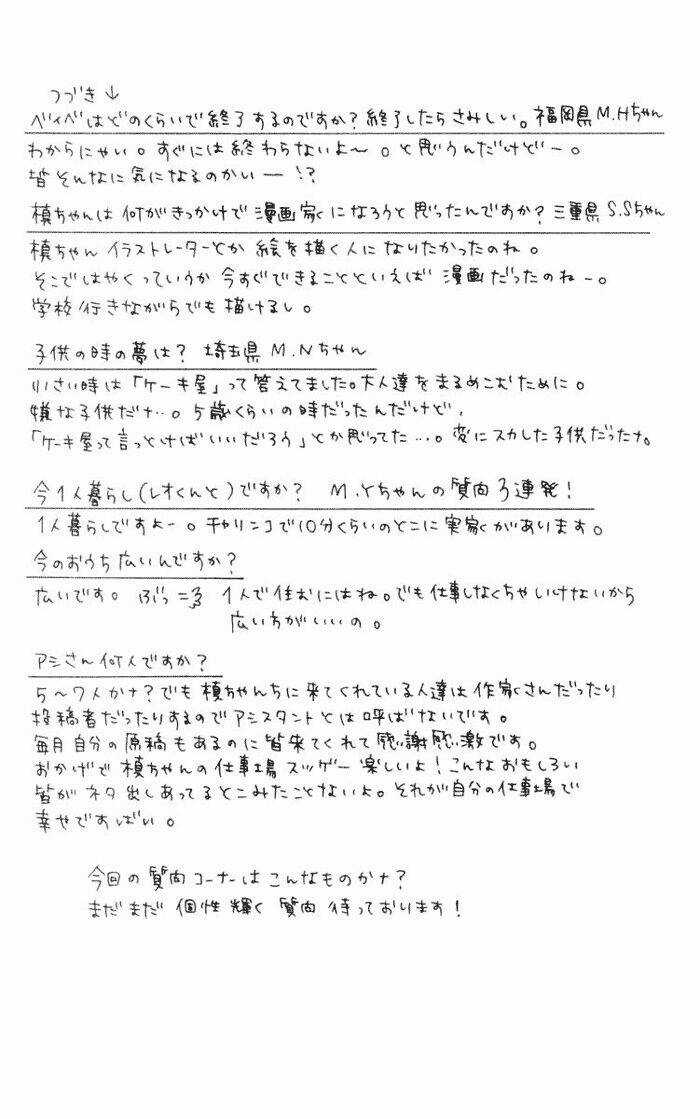 つづき↓
ベイベはどのくらいで終了するのですか?終了したらさみしい。福岡県M.Hちゃん
わからにゃい。すぐには終わらないよ〜。と思うんだけどー。
皆そんなに気になるのかいー!?
槙ちゃんは何がきっかけで漫画家になろうと思ったんですか?三重県S.Sちゃん
槙ちゃんイラストレーターとか絵を描く人になりたかったのね。
そこではやくっていうか今すぐできることといえば漫画だったのねー。
学校行きながらでも描けるし。
子供の時の夢は?埼玉県M.Nちゃん
小さい時は「ケーキ屋」って答えてました。大人達をまるめこむために。
嫌な子供だナ…。5歳くらいの時だったんだけど、
「ケーキ屋って言っとけばいいだろう」とか思ってた…。変にスカした子供だったナ。
今1人暮らし(レオくんと)ですか? M.Yちゃんの質問3連発!
1人暮らしですよー。チャリンコで10分くらいのとこに実家があります。
今のおうち広いんですか?
広いです。ぶっ =3 1人で住むにはね。でも仕事しなくちゃいけないから
広い方がいいの。
アシさん何人ですか?
5〜7人かナ?でも槙ちゃんちに来てくれている人達は作家さんだったり
投稿者だったりするのでアシスタントとは呼ばないです。
毎月自分の原稿もあるのに皆来てくれて感謝感激です。
おかげで槙ちゃんの仕事場スッゲー楽しいよ!こんなおもしろい
皆がネタ出しあってるとこみたことないよ。それが自分の仕事場で
幸せですばい。
今回の質問コーナーはこんなものかナ?
まだまだ個性輝く質問待っております!